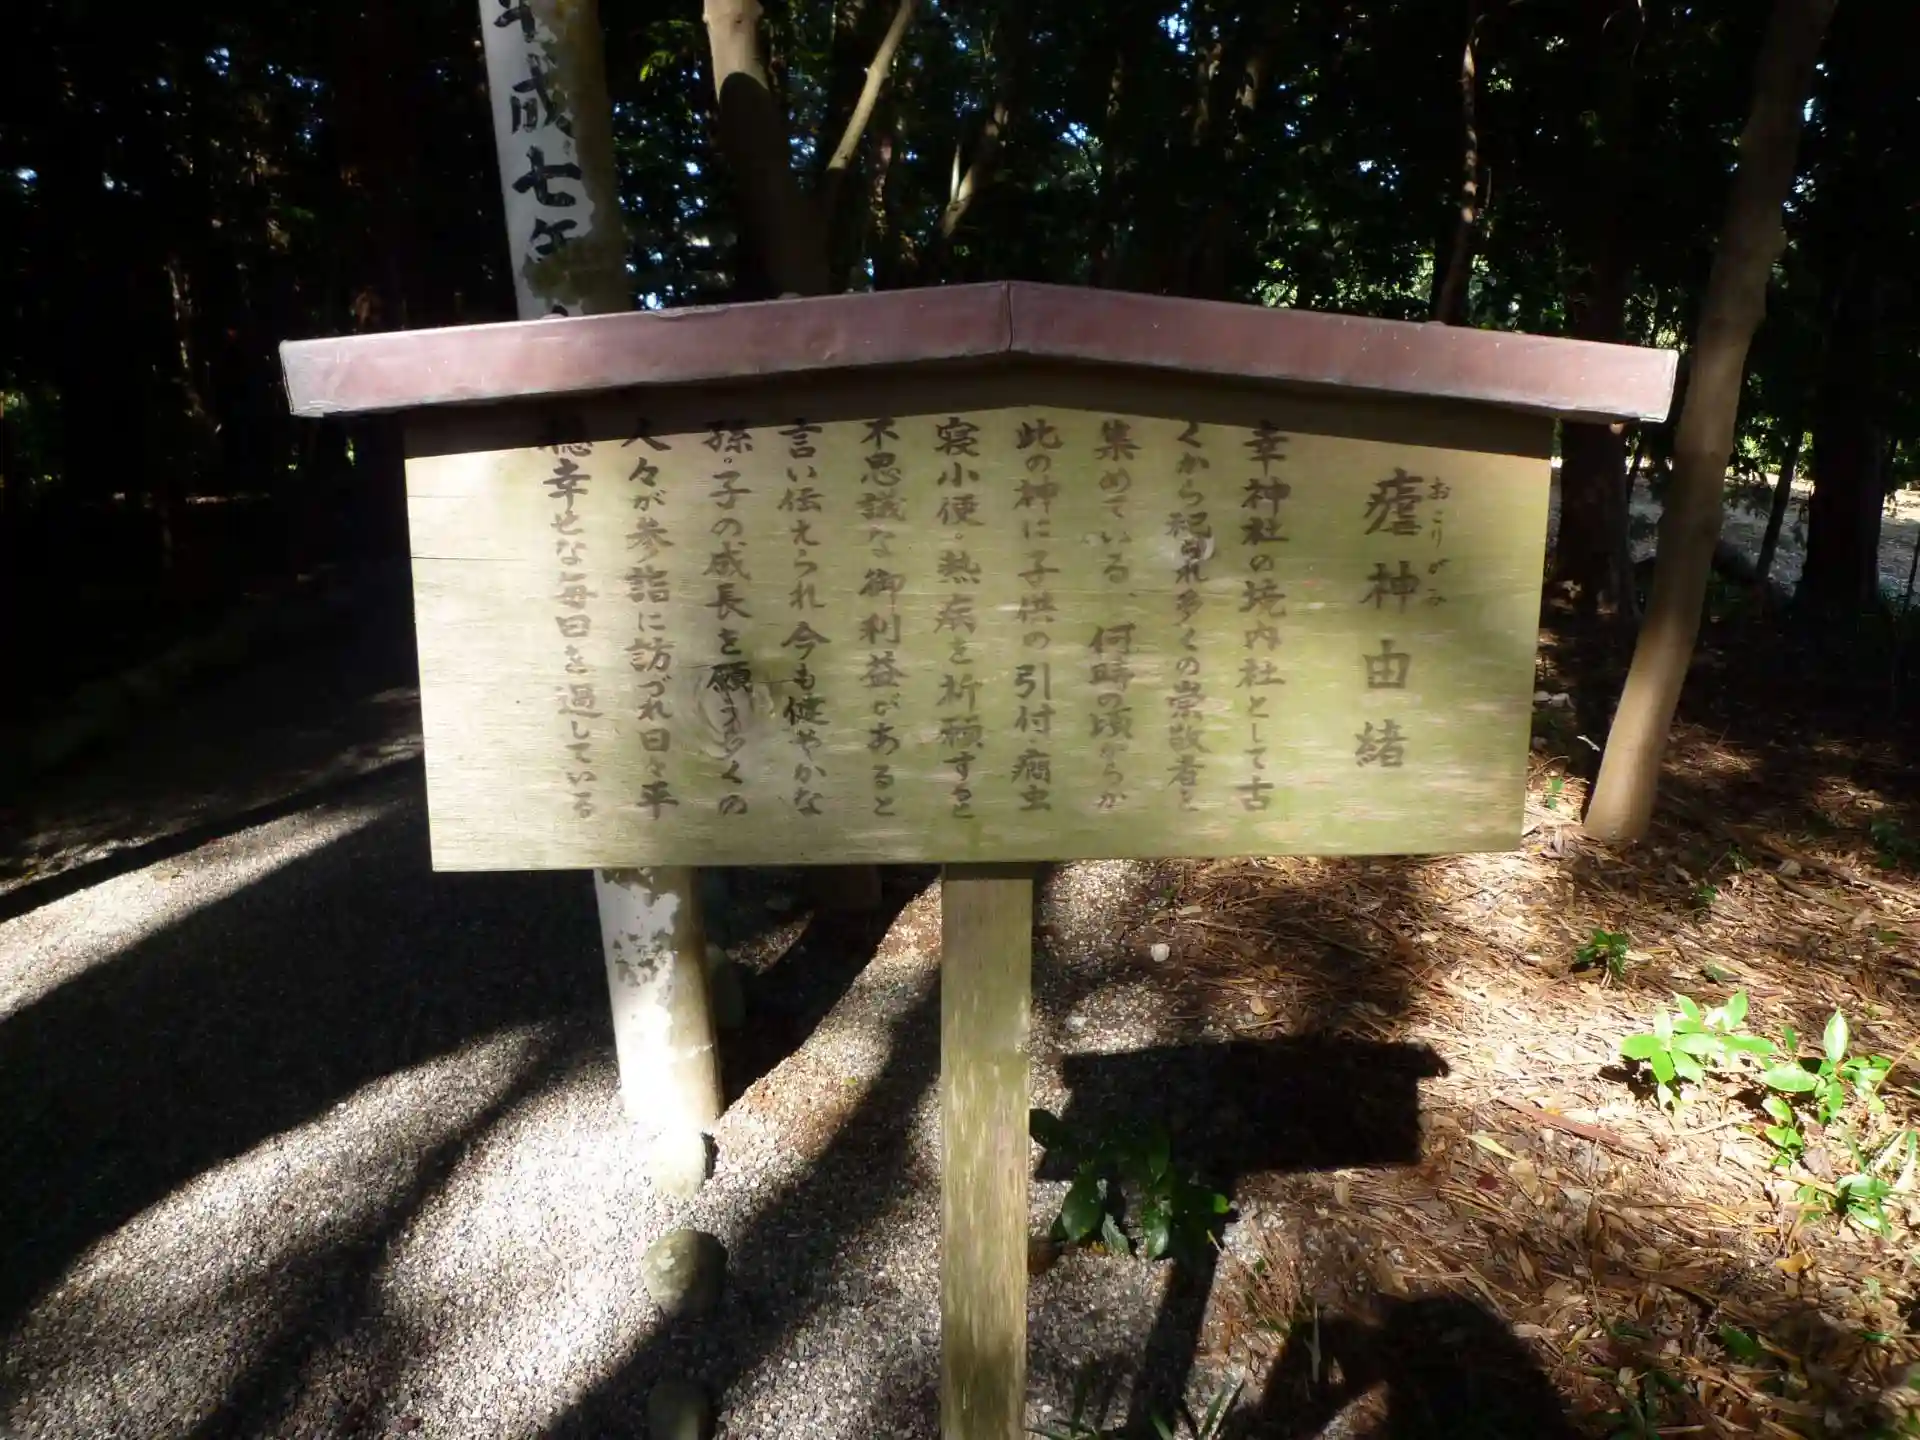 瘧神由緒
おこりがみ
幸神社の境内社として古
くから祀られ多くの崇敬者を
集めている、何時の頃からか
此の神に子供の引付・癇虫
寝小便・熱病を祈願すると
不思議な御利益があると
言い伝えられ今も健やかな
孫・子の成長を願う多くの
人々が参詣に訪づれ日々平
穏幸せな毎日を過している
平成七年